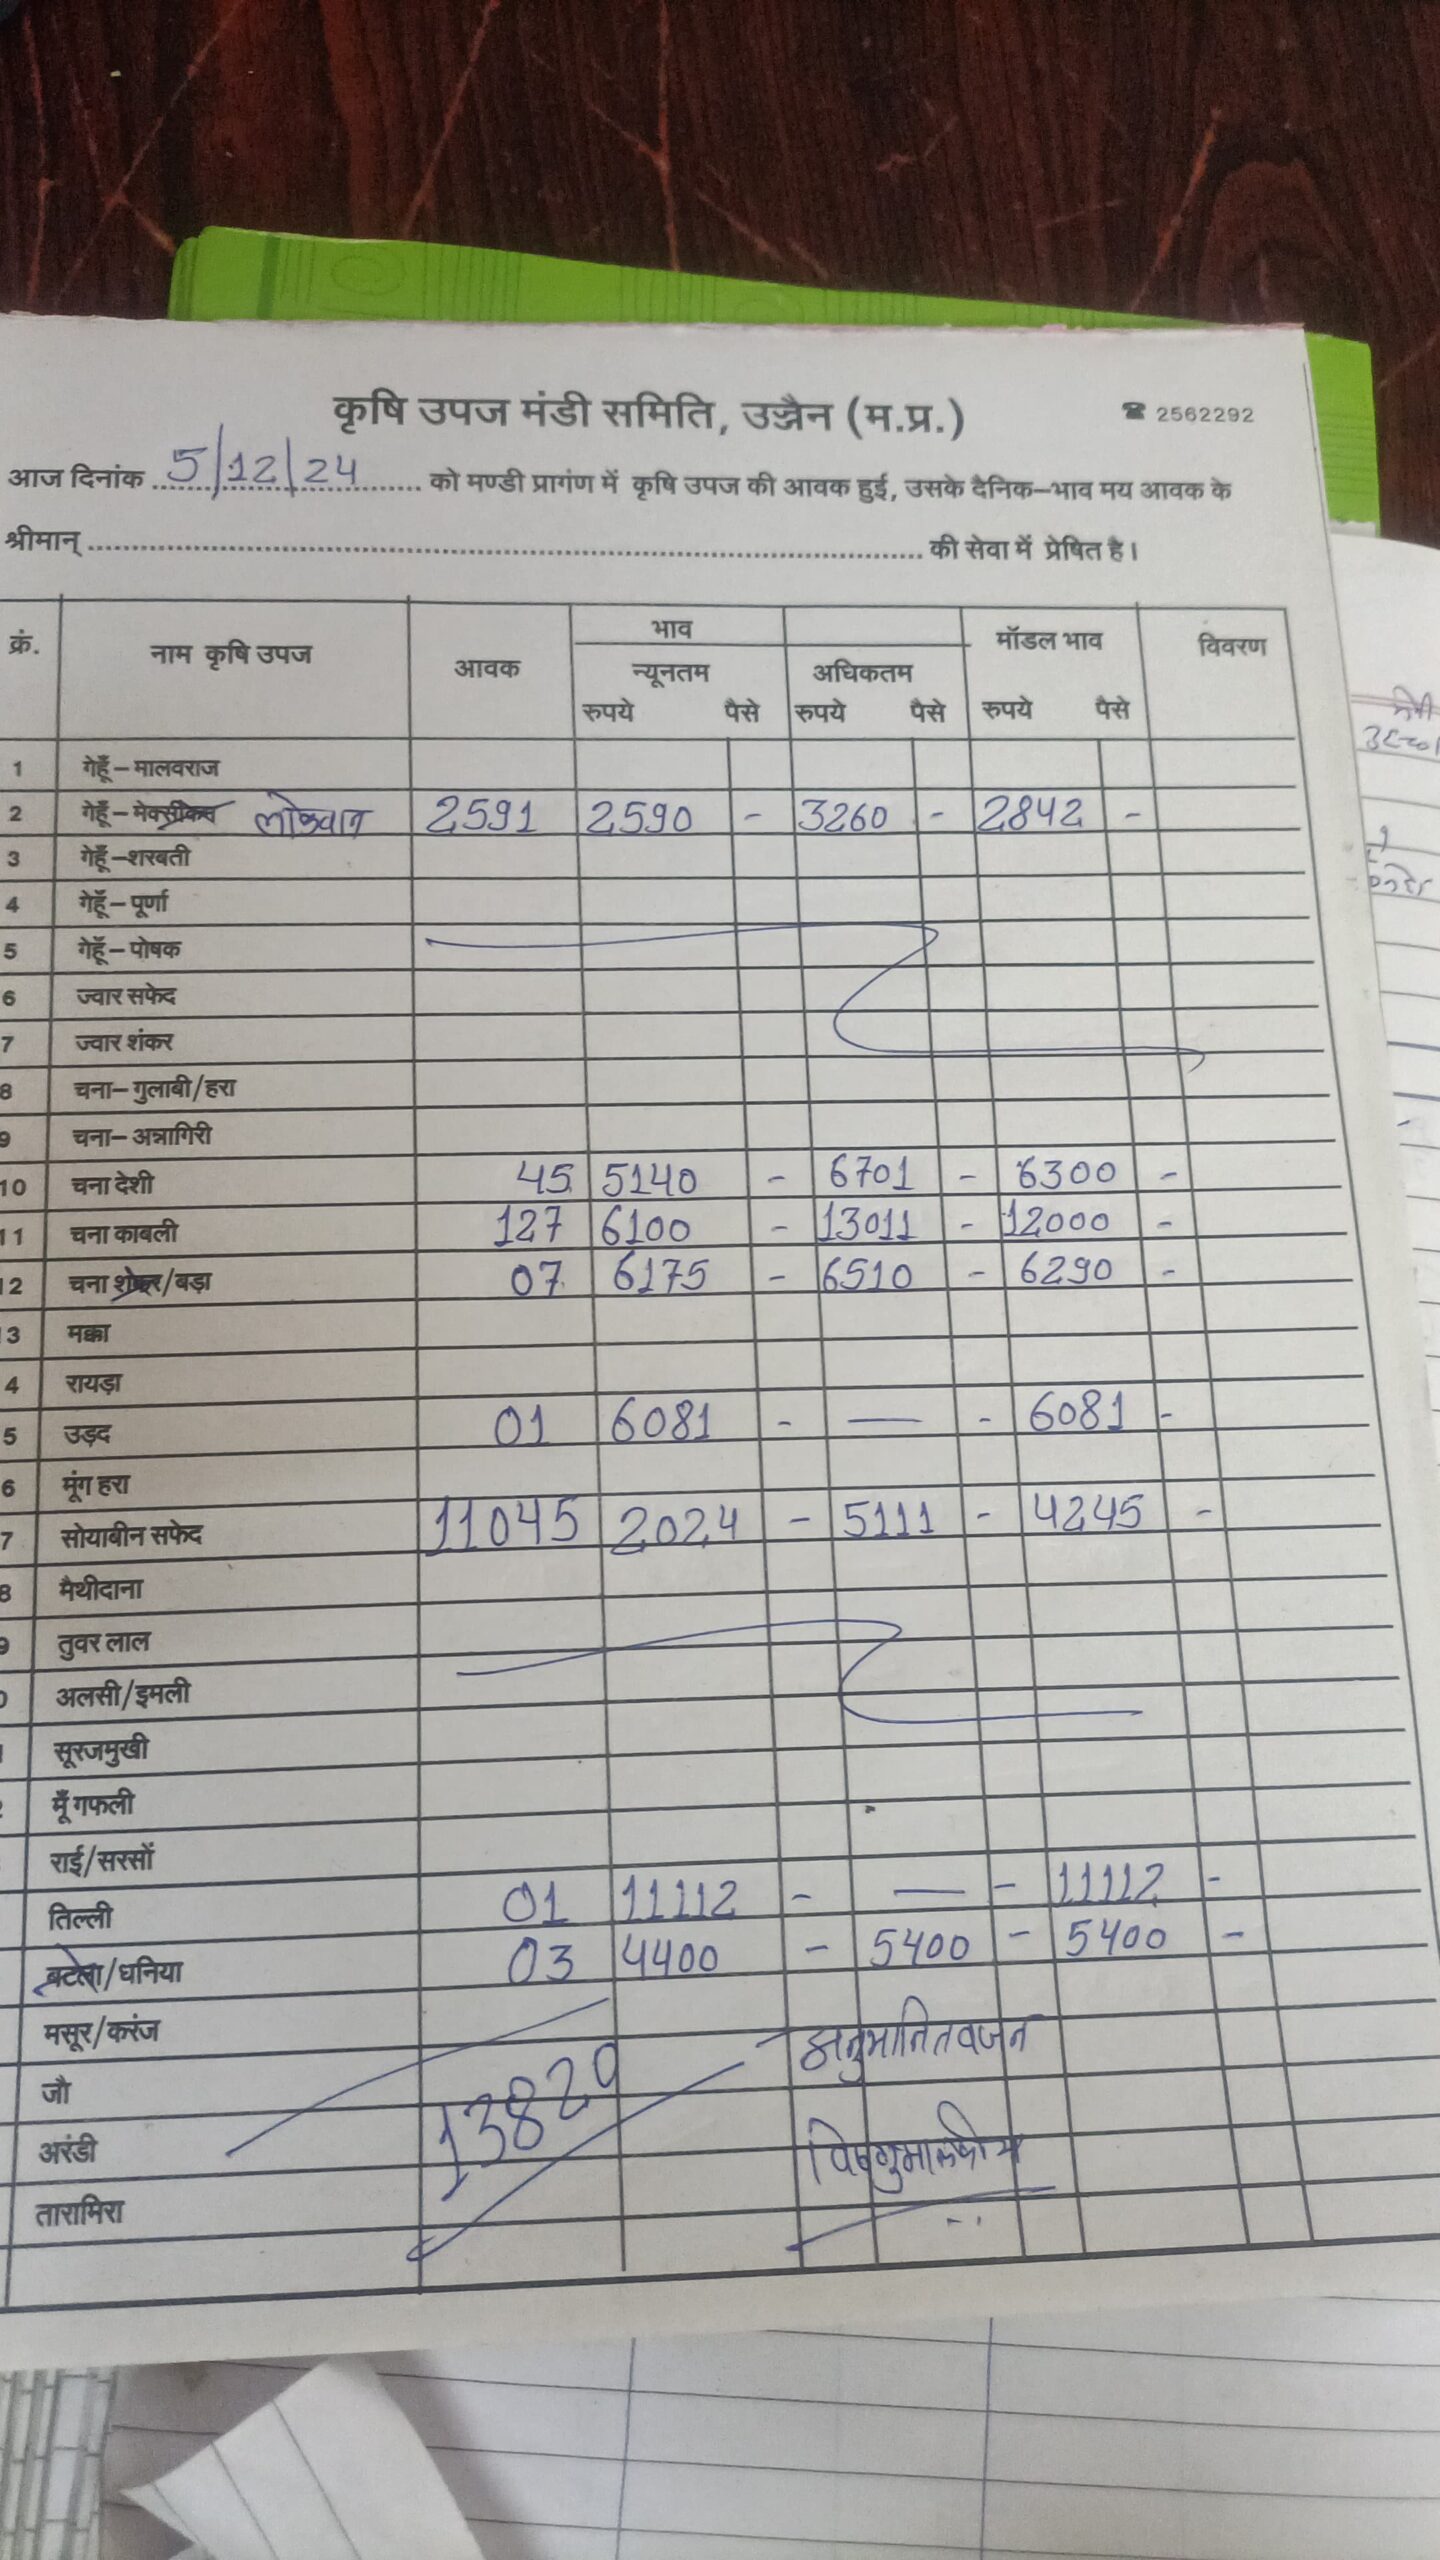 कृषि उपज मंडी समिति, उज्जैन (म.प्र.) ☎ 2562292
आज दिनांक 5/12/24 को मण्डी प्रागंण में कृषि उपज की आवक हुई, उसके दैनिक–भाव मय आवक के
श्रीमान् की सेवा में प्रेषित है।
क्रं. नाम कृषि उपज आवक भाव मॉडल भाव विवरण
न्यूनतम अधिकतम
रुपये पैसे रुपये पैसे रुपये पैसे
1 गेहूँ–मालवराज
2 गेहूँ–मेक्सीकन लोकवान 2591 2590 - 3260 - 2842 -
3 गेहूँ–शरबती
4 गेहूँ–पूर्णा
5 गेहूँ–पोषक
6 ज्वार सफेद
7 ज्वार शंकर
8 चना–गुलाबी/हरा
9 चना–अन्नागिरी
10 चना देशी 45 5140 - 6701 - 6300 -
11 चना काबली 127 6100 - 13011 - 12000 -
12 चना शंकर/बड़ा 07 6175 - 6510 - 6290 -
13 मक्का
4 रायड़ा
5 उड़द 01 6081 - — - 6081 -
6 मूंग हरा
7 सोयाबीन सफेद 11045 2024 - 5111 - 4245 -
8 मैथीदाना
9 तुवर लाल
0 अलसी/इमली
सूरजमुखी
मूँगफली
राई/सरसों
तिल्ली 01 11112 - — - 11112 -
बटला/धनिया 03 4400 - 5400 - 5400 -
मसूर/करंज अनुमानित वजन
जौ 13820
अरंडी विष्णु मालवीय
तारामिरा